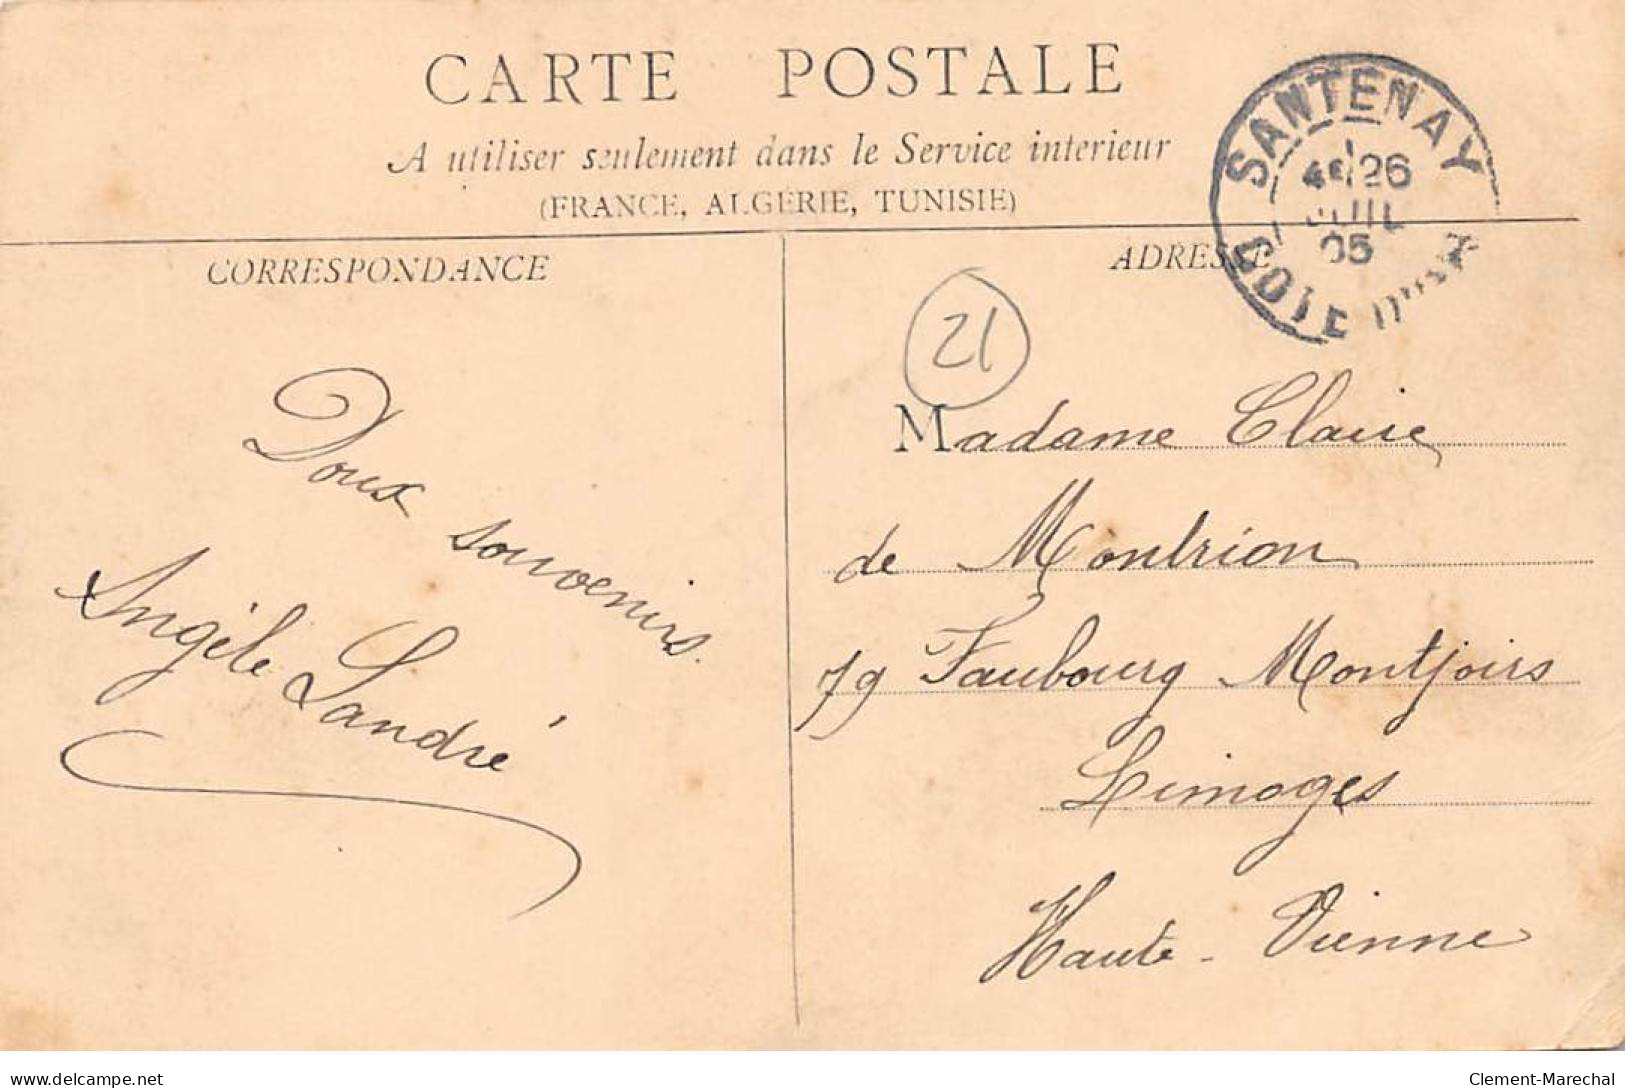 CARTE POSTALE
A utiliser seulement dans le Service interieur
(FRANCE, ALGÉRIE, TUNISIE)
CORRESPONDANCE
ADRESSE
SANTENAY
26
JUIL
05
CÔTE D'OR
21
Doux souvenirs.
Angèle Landré
Madame Claire
de Montrion
79 Faubourg Montjoirs
Limoges
Haute-Vienne
delcampe.net
Clement-Marechal